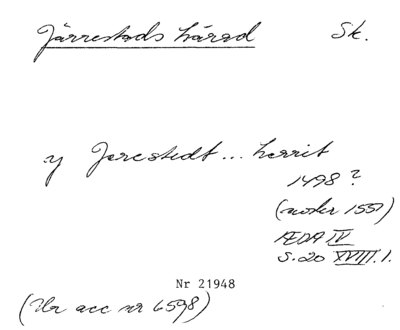 Järrestads härad Sk.
y Jerestedt... herrit
1498?
(under 1551)
ÆDA IV
S. 20 XVIII. 1.
Nr 21948
(Ur acc nr 6598)